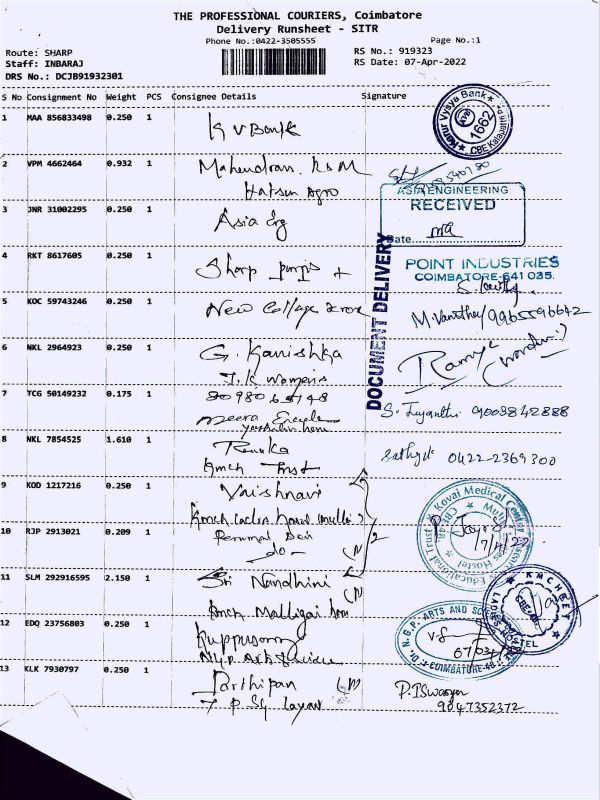 THE PROFESSIONAL COURIERS, Coimbatore
Delivery Runsheet - SITR
Phone No.:0422-3505555 Page No.:1
Route: SHARP RS No.: 919323
Staff: INBARAJ RS Date: 07-Apr-2022
DRS No.: DCJB91932301
S No Consignment No Weight PCS Consignee Details Signature
1 MAA 856833498 0.250 1 K V Bank
Karur Vysya Bank 1662
2 VPM 4662464 0.932 1 Mahendran
Hatsun Agro
ASIA ENGINEERING
RECEIVED
Date
3 JNR 31002295 0.250 1 Asia Eng
DOCUMENT DELIVERY
4 RKT 8617605 0.250 1 Sharp pumps
POINT INDUSTRIES
COIMBATORE-641 035.
5 KOC 59743246 0.250 1 New College
M. Vanitha / 9965596642
6 NKL 2964923 0.250 1 G. Kanishka
J.K Womens
Ramya (warden)
7 TCG 50149232 0.175 1
Meera
S. Jayanthi 9009842888
8 NKL 7854525 1.610 1 Renuka
Kmch Trust
Sathya 0422-2369300
9 KOD 1217216 0.250 1 Vaishnavi
Kmch
Kovai Medical Center
Educational Trust
10 RJP 2913021 0.209 1
-do-
7/4/22
11 SLM 292916595 2.150 1 Sri Nandhini
Kmch Malligai
KMCHBET
LADIES HOSTEL
12 EDQ 23756803 0.250 1 Kuppusamy
N.G.P. Arts & Science
DR. N.G.P. ARTS AND SCIENCE
COIMBATORE-48
07/04/22
13 KLK 7930797 0.250 1 Parthipan
7 P Sg Layout
9047352372